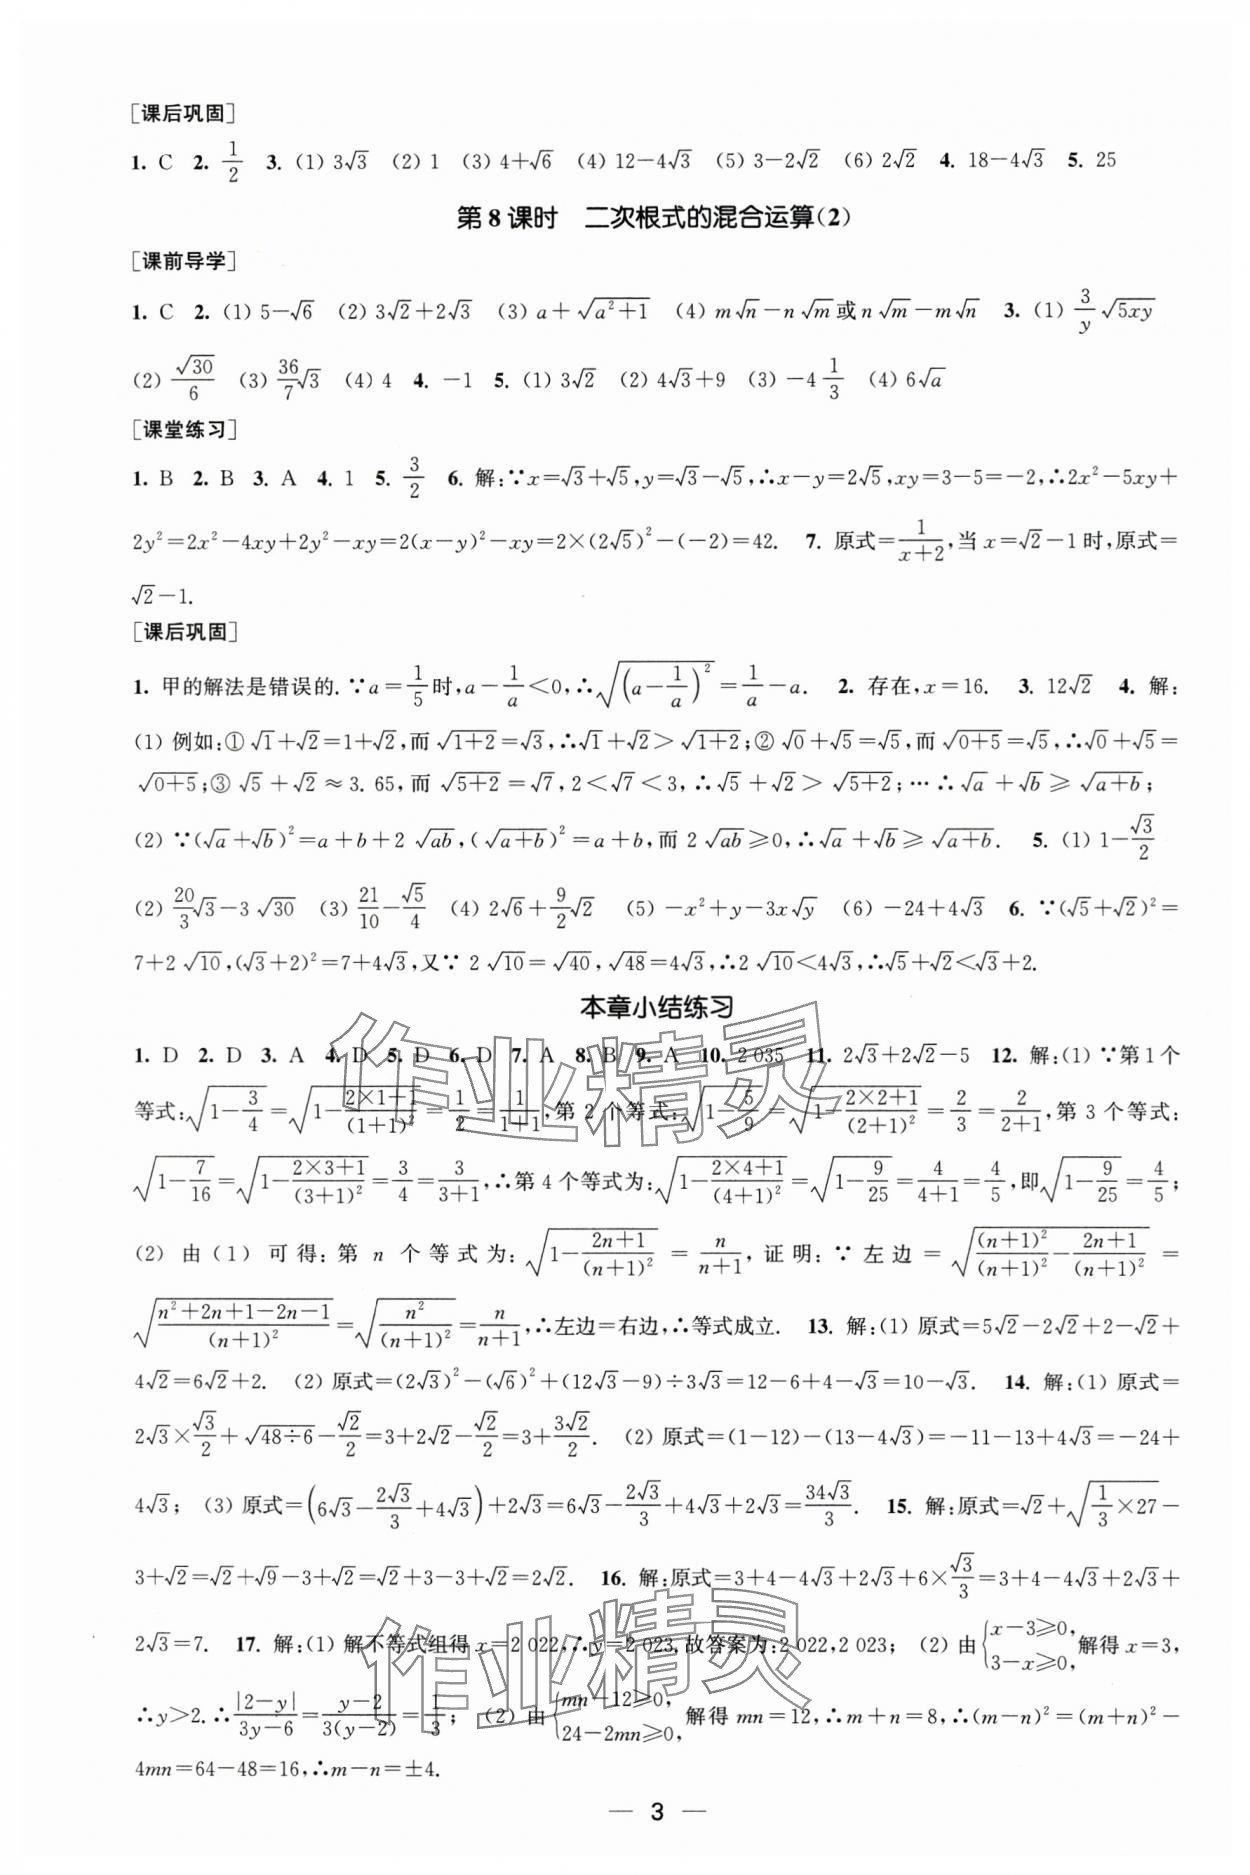 [课后巩固]
1. C 2. 1/2 3. (1) 3√3 (2) 1 (3) 4+√6 (4) 12-4√3 (5) 3-2√2 (6) 2√2 4. 18-4√3 5. 25
第8课时 二次根式的混合运算(2)
[课前导学]
1. C 2. (1) 5-√6 (2) 3√2+2√3 (3) a+√(a²+1) (4) m√n-n√m或n√m-m√n 3. (1) 3/y √(5xy)
(2) √30/6 (3) 36/7√3 (4) 4 4. -1 5. (1) 3√2 (2) 4√3+9 (3) -4 1/3 (4) 6√a
[课堂练习]
1. B 2. B 3. A 4. 1 5. 3/2 6. 解:∵x=√3+√5,y=√3-√5,∴x-y=2√5,xy=3-5=-2,∴2x²-5xy+
2y²=2x²-4xy+2y²-xy=2(x-y)²-xy=2×(2√5)²-(-2)=42. 7. 原式=1/(x+2),当x=√2-1时,原式=
√2-1.
[课后巩固]
1. 甲的解法是错误的.∵a=1/5时,a-1/a<0,∴√((a-1/a)²)=1/a-a. 2. 存在,x=16. 3. 12√2 4. 解:
(1) 例如:①√1+√2=1+√2,而√(1+2)=√3,∴√1+√2>√(1+2);②√0+√5=√5,而√(0+5)=√5,∴√0+√5=
√(0+5);③√5+√2≈3.65,而√(5+2)=√7,2<√7<3,∴√5+√2>√(5+2);…∴√a+√b≥√(a+b);
(2) ∵(√a+√b)²=a+b+2√(ab),(√(a+b))²=a+b,而2√(ab)≥0,∴√a+√b≥√(a+b). 5. (1) 1-√3/2
(2) 20/3√3-3√30 (3) 21/10-√5/4 (4) 2√6+9/2√2 (5) -x²+y-3x√y (6) -24+4√3 6. ∵(√5+√2)²=
7+2√10,(√3+2)²=7+4√3,又∵2√10=√40,√48=4√3,∴2√10<4√3,∴√5+√2<√3+2.
本章小结练习
1. D 2. D 3. A 4. D 5. D 6. D 7. A 8. B 9. A 10. 2 035 11. 2√3+2√2-5 12. 解:(1) ∵第1个
等式:√(1-3/4)=√(1-(2×1+1)/(1+1)²)=1/2=1/(1+1),第2个等式:√(1-5/9)=√(1-(2×2+1)/(2+1)²)=2/3=2/(2+1),第3个等式:
√(1-7/16)=√(1-(2×3+1)/(3+1)²)=3/4=3/(3+1),∴第4个等式为:√(1-(2×4+1)/(4+1)²)=√(1-9/25)=4/(4+1)=4/5,即√(1-9/25)=4/5;
(2) 由(1)可得:第n个等式为:√(1-(2n+1)/(n+1)²)=n/(n+1),证明:∵左边=√((n+1)²/(n+1)²-(2n+1)/(n+1)²)=
√((n²+2n+1-2n-1)/(n+1)²)=√(n²/(n+1)²)=n/(n+1),∴左边=右边,∴等式成立. 13. 解:(1) 原式=5√2-2√2+2-√2+
4√2=6√2+2. (2) 原式=(2√3)²-(√6)²+(12√3-9)÷3√3=12-6+4-√3=10-√3. 14. 解:(1) 原式=
2√3×√3/2+√(48÷6)-√2/2=3+2√2-√2/2=3+3√2/2. (2) 原式=(1-12)-(13-4√3)=-11-13+4√3=-24+
4√3; (3) 原式=(6√3-2√3/3+4√3)+2√3=6√3-2√3/3+4√3+2√3=34√3/3. 15. 解:原式=√2+√(1/3×27)-
3+√2=√2+√9-3+√2=√2+3-3+√2=2√2. 16. 解:原式=3+4-4√3+2√3+6×√3/3=3+4-4√3+2√3+
2√3=7. 17. 解:(1) 解不等式组得x=2 022,∴y=2 023,故答案为:2 022,2 023; (2) 由{x-3≥0,3-x≥0,解得x=3,
∴y>2.∴|2-y|/(3y-6)=(y-2)/(3(y-2))=1/3; (2) 由{mn-12≥0,24-2mn≥0,解得mn=12,∴m+n=8,∴(m-n)²=(m+n)²-
4mn=64-48=16,∴m-n=±4.
— 3 —
作业精灵
作业精灵